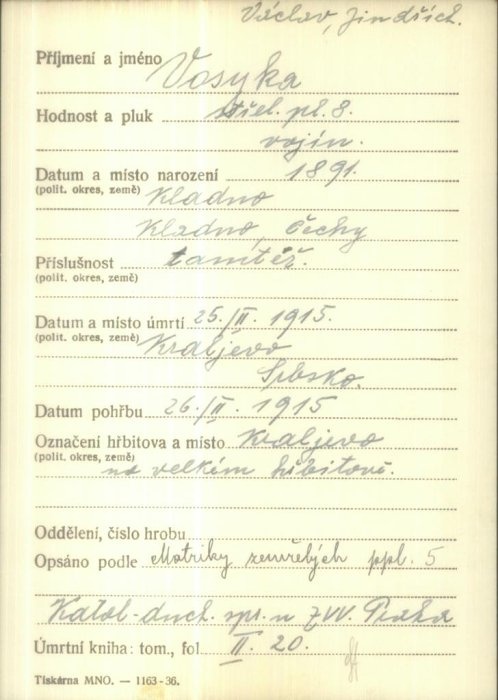 Václav, Jindřich.
Příjmení a jméno Vosyka
Hodnost a pluk střel. pl. 8.
vojín.
Datum a místo narození 1891.
(polit. okres, země) Kladno
Kladno, Čechy
Příslušnost tamtéž.
(polit. okres, země)
Datum a místo úmrtí 25./II. 1915.
(polit. okres, země) Kraljevo
Srbsko.
Datum pohřbu 26./II. 1915
Označení hřbitova a místo Kraljevo
(polit. okres, země) na velkém hřbitově.
Oddělení, číslo hrobu
Opsáno podle Matriky zemřelých ppl. 5
Katol. duch. spr. u ZVV. Praha
Úmrtní kniha: tom., fol. II. 20.
Tiskárna MNO. — 1163-36.